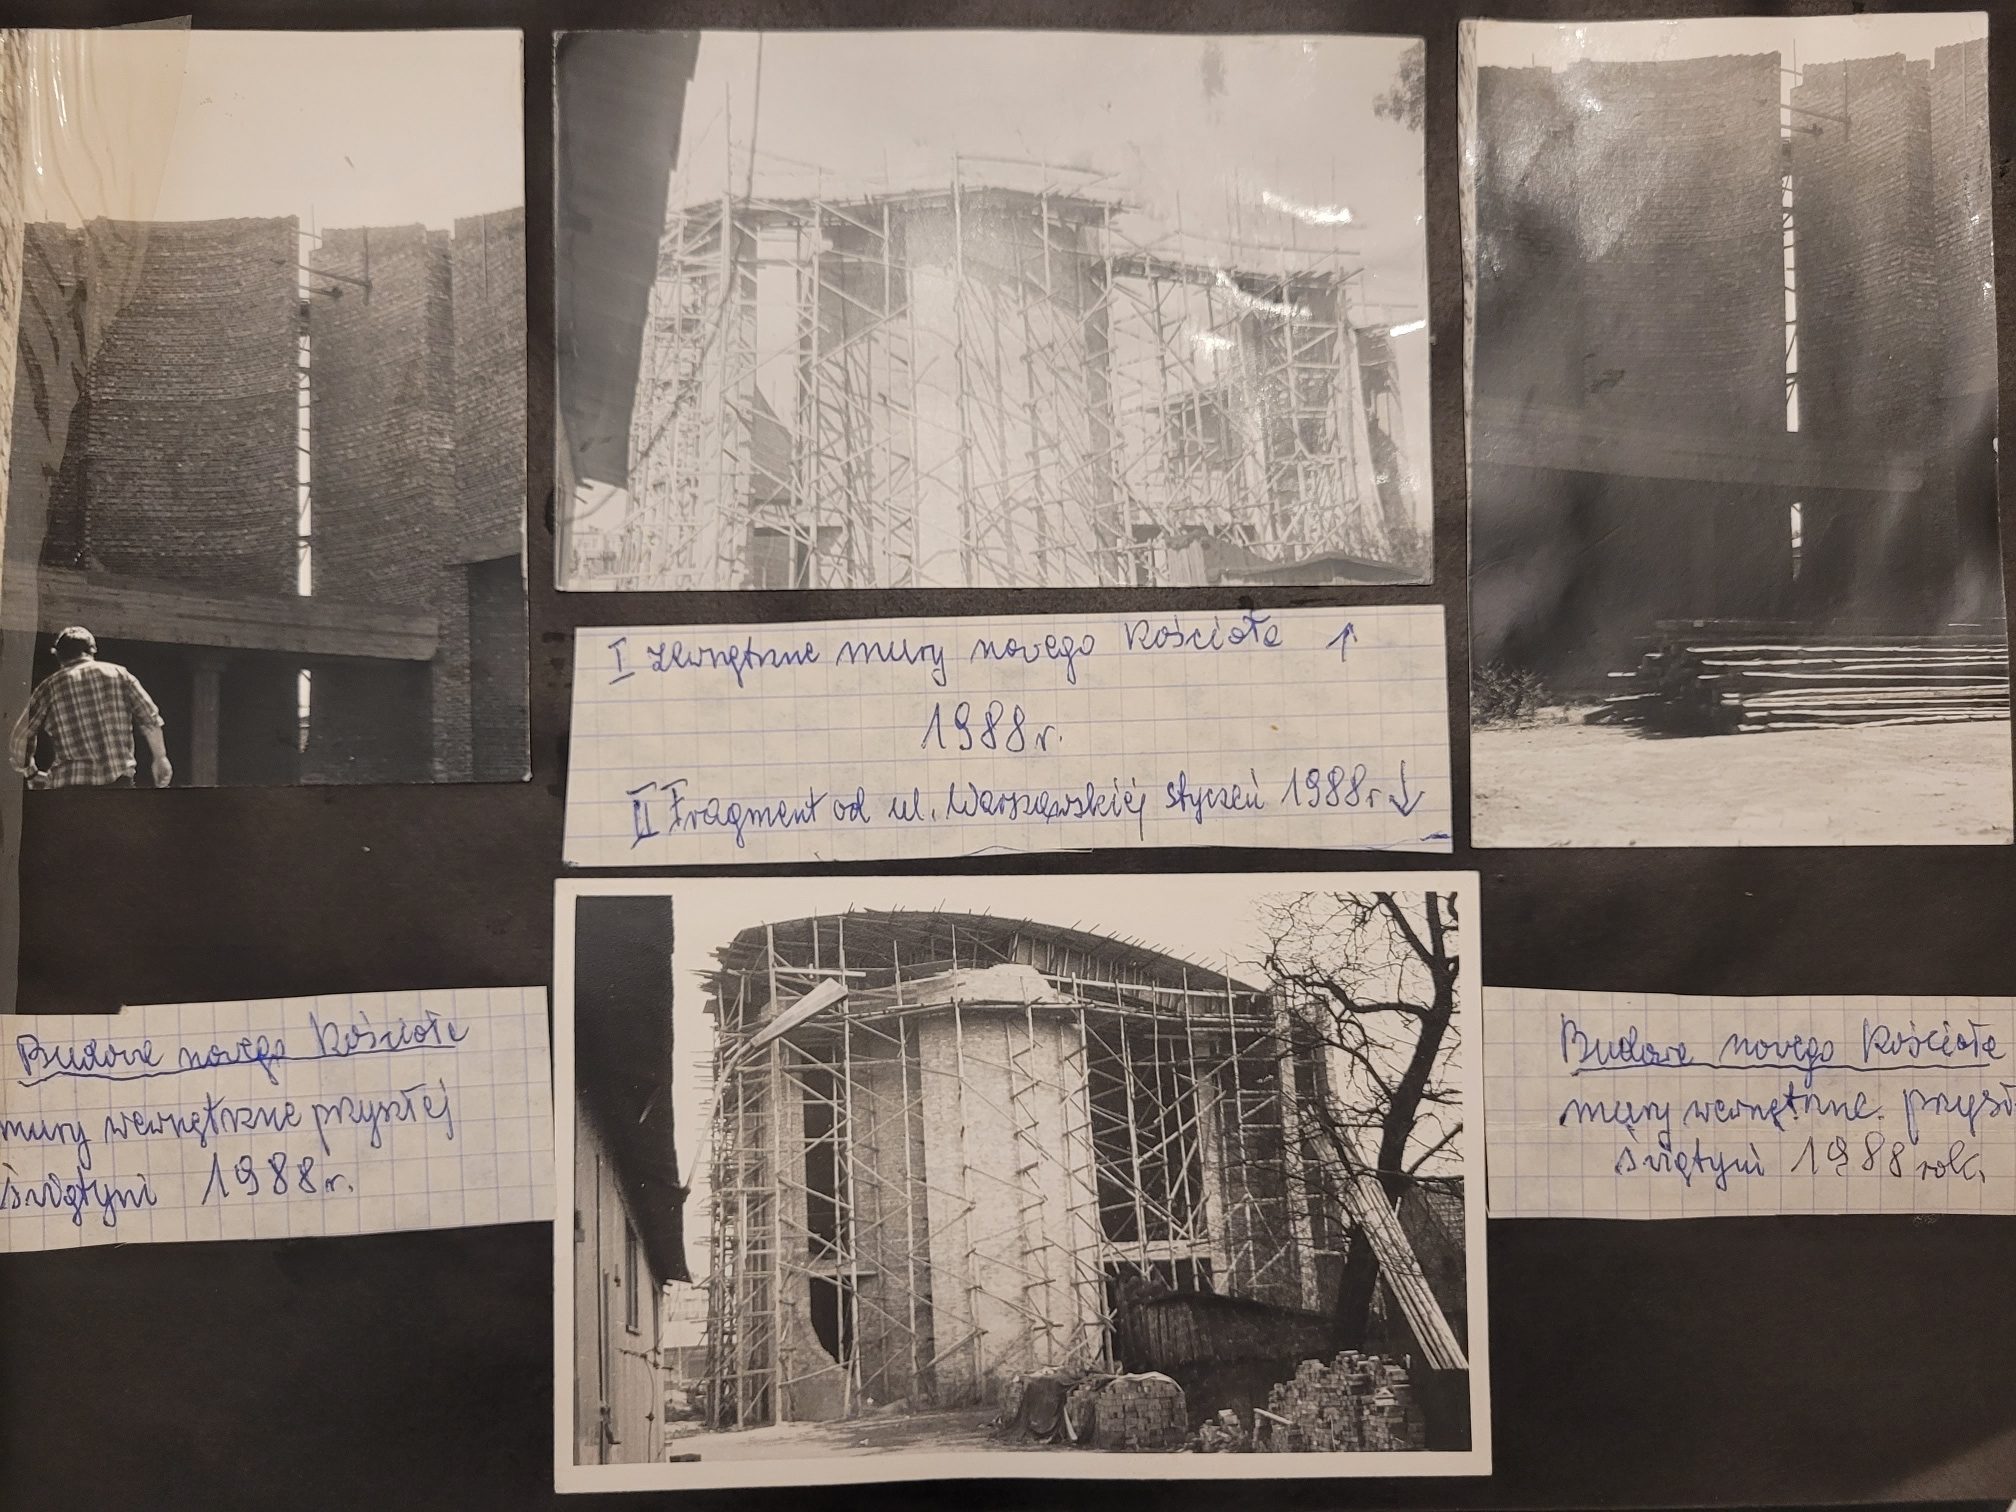 I Zewnętrzne mury nowego Kościoła ↑
1988 r.
II Fragment od ul. Warszawskiej styczeń 1988 r ↓
Budowa nowego Kościoła
mury wewnętrzne przyszłej
świątyni 1988 r.
Budowa nowego Kościoła
mury wewnętrzne przysz
świątyni 1988 rok.